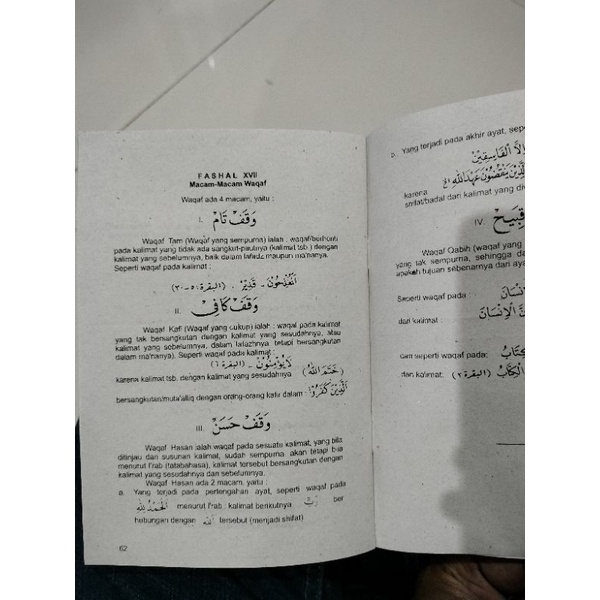 FASHAL XVII
Macam-Macam Waqaf
Waqaf ada 4 macam, yaitu :
I. وَقَفْ تَامْ
Waqaf Tam (Waqaf yang sempurna) ialah : waqaf/berhenti
pada kalimat yang tidak ada sangkut-pautnya (kalimat tsb.) dengan
kalimat yang sebelumnya, baik dalam lafadz maupun ma'nanya.
Seperti waqaf pada kalimat :
قَدِيْرٌ . (البقرة :
II. وَقَفْ كَافِى
Waqaf Kafi (Waqaf yang cukup) ialah : waqaf pada kalimat
yang tak bersangkutan dengan kalimat yang sesudahnya, atau
kalimat yang sebelumnya, dalam lafazhnya, tetapi bersangkutan
dalam ma'nanya). Seperti waqaf pada kalimat :
لَا يُؤْمِنُوْنَ - (البقرة ٦)
karena kalimat tsb. dengan kalimat yang sesudahnya (خَتَمَ اللهُ)
bersangkutan/muta'alliq dengan orang-orang kafir dalam : الَّذِيْنَ كَفَرُوْا
III. وَقَفْ حَسَنْ
Waqaf Hasan ialah waqaf pada sesuatu kalimat, yang bila
ditinjau dari susunan kalimat, sudah sempurna akan tetapi bila
menurut I'rab (tatabahasa), kalimat tersebut bersangkutan dengan
kalimat yang sesudahnya dan sebelumnya.
Waqaf Hasan ada 2 macam, yaitu :
a. Yang terjadi pada pertengahan ayat, seperti waqaf pada
اَلْحَمْدُ لِلّٰهِ menurut I'rab : kalimat berikutnya رَبِّ ber
hubungan dengan اَللهُ tersebut (menjadi shifat)
62
b. Yang terjadi pada akhir ayat, sepe
اِلَّا الْفَاسِقِيْنَ
الَّذِيْنَ يَنْقُضُوْنَ عَهْدَ اللهِ
karena
shifat/badal dari kalimat yang di
IV. قَبِيْحْ
Waqaf Qabih (waqaf yang
yang tak sempurna, sehingga d
apakah tujuan sebenarnya dari aya
Seperti waqaf pada :
dari kalimat :
dan seperti waqaf pada:
dari kalimat: الْكِتَابُ (البقرة ٢)